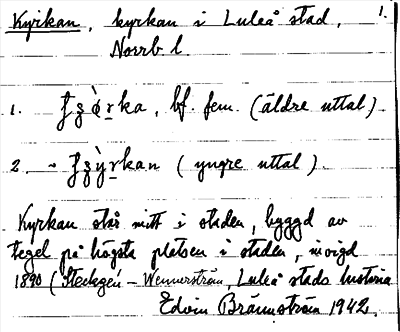 Kyrkan, kyrkan i Luleå stad, 1.
Norrb l.
1. ʃʒø̀rka, bf. fem. (äldre uttal)
2. ~ ʃʒỳrkan (yngre uttal).
Kyrkan står mitt i staden, byggd av
tegel på högsta platsen i staden, invigd
1890 (Steckzén - Wennerström, Luleå stads historia
Edvin Brännström 1942.